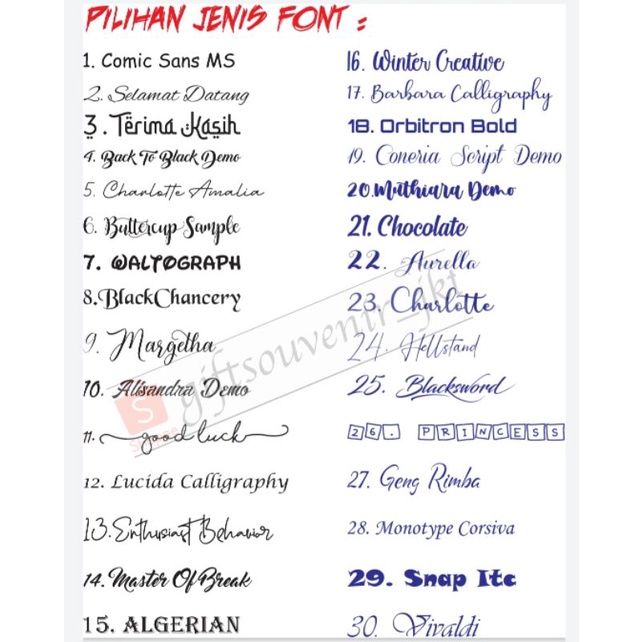 PILIHAN JENIS FONT :
1. Comic Sans MS
2. Selamat Datang
3. Terima Kasih
4. Back To Black Demo
5. Charlotte Amalia
6. Buttercup Sample
7. WALTOGRAPH
8.BlackChancery
9. Margetha
10. Alisandra Demo
11. good luck
12. Lucida Calligraphy
13.Enthusiast Behavior
14. Master Of Break
15. ALGERIAN
16. Winter Creative
17. Barbara Calligraphy
18. Orbitron Bold
19. Coneria Script Demo
20.Muthiara Demo
21. Chocolate
22. Aurella
23. Charlotte
24. Hellstand
25. Blacksword
26. PRINCESS
27. Geng Rimba
28. Monotype Corsiva
29. Snap Itc
30. Vivaldi
giftsouvenir_jkt